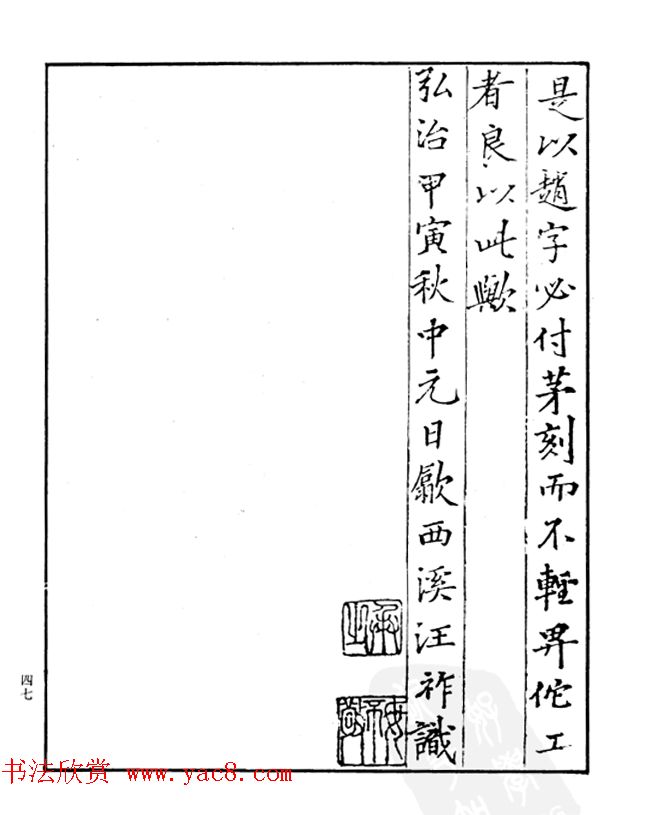 是以趙字必付茅刻而不輕畀佗工
者良以此歟
弘治甲寅秋中元日歙西溪汪祚識
四七
书法欣赏 www.yac8.com